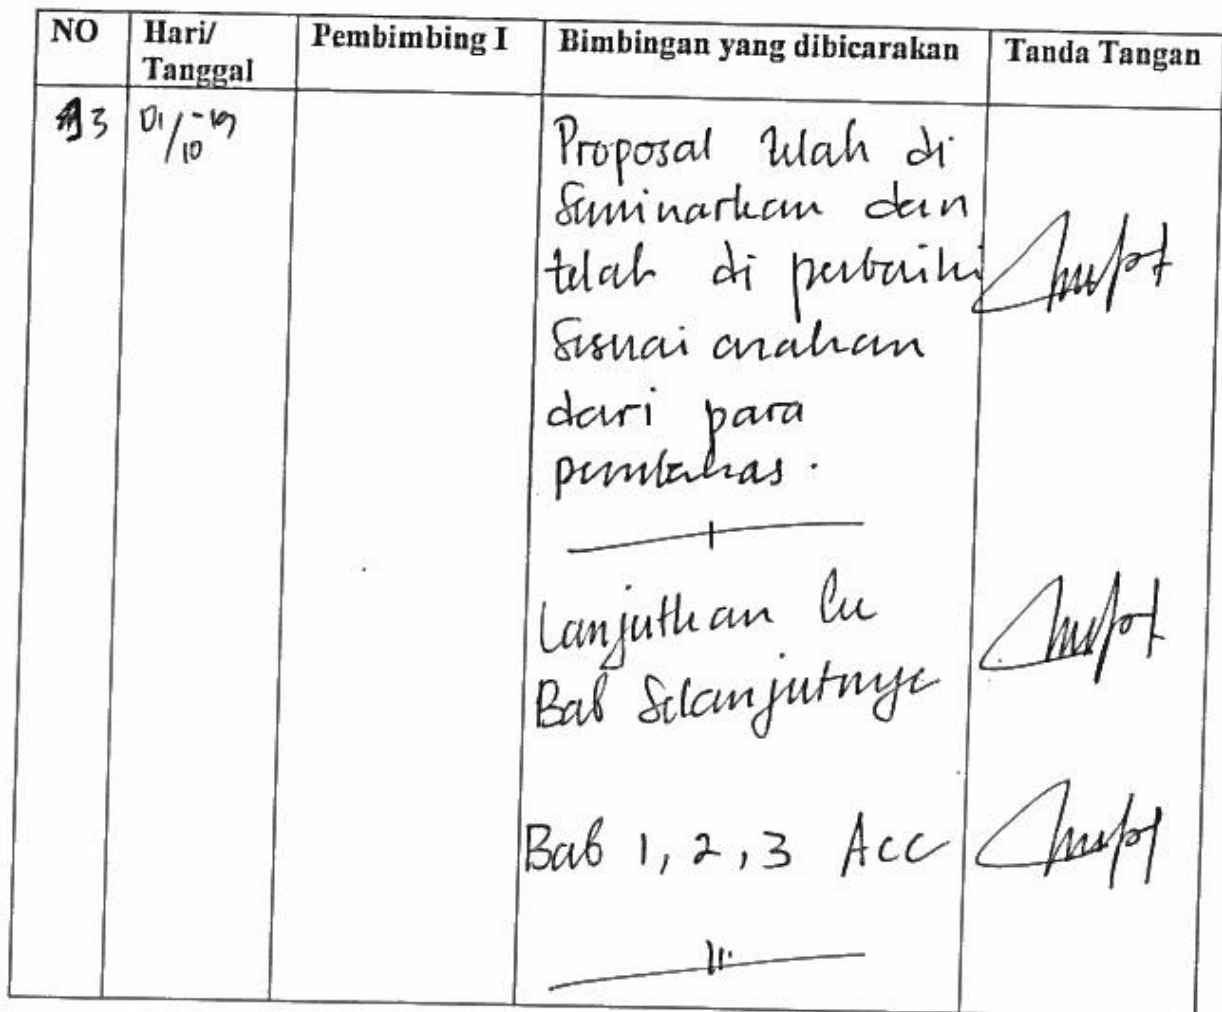 NO Hari/ Pembimbing I Bimbingan yang dibicarakan Tanda Tangan
Tanggal
3 01/10 -19 Proposal telah di
Seminarkan dan
telah di perbaiki
Sesuai arahan
dari para
pembahas.
Lanjutkan ke
Bab Selanjutnya
Bab 1, 2, 3 Acc